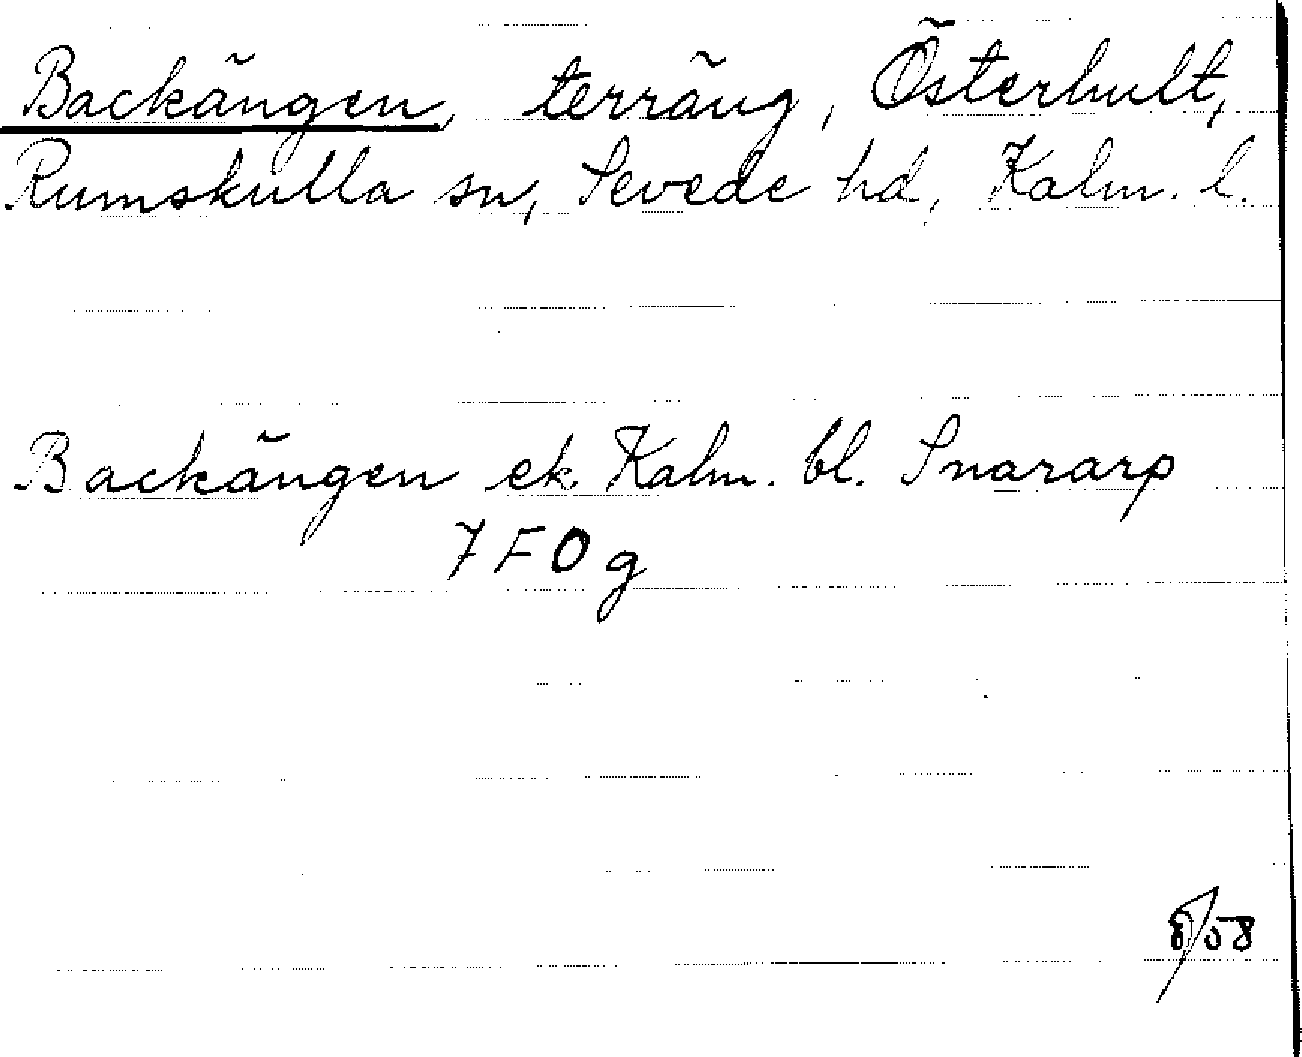 Backängen, terräng, Österhult,
Rumskulla sn, Sevede hd, Kalm. l.
Backängen ek. Kalm. bl. Snararp
7 F 0 g
58